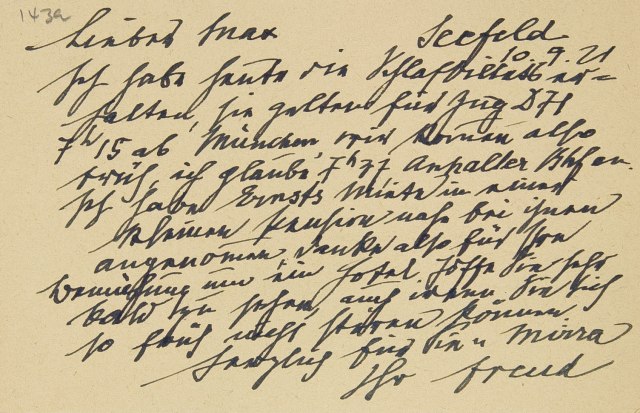 143a
Lieber Max
Seefeld
10.9.21
Ich habe heute die Schlafbillets er=
halten, sie gelten für Zug D71
7h 15 ab München, wir kommen also
früh, ich glaube, 7h 37 Anhalter Bhf an.
Ich habe Ernsts Miete in einer
kleinen Pension nahe bei ihnen
angenomen, danke also für Ihre
Bemühung um ein Hotel. Hoffe Sie sehr
bald zu sehen, auch wenn Sie sich
so früh nicht stören können.
Herzlich für Sie u Mirra
Ihr Freud